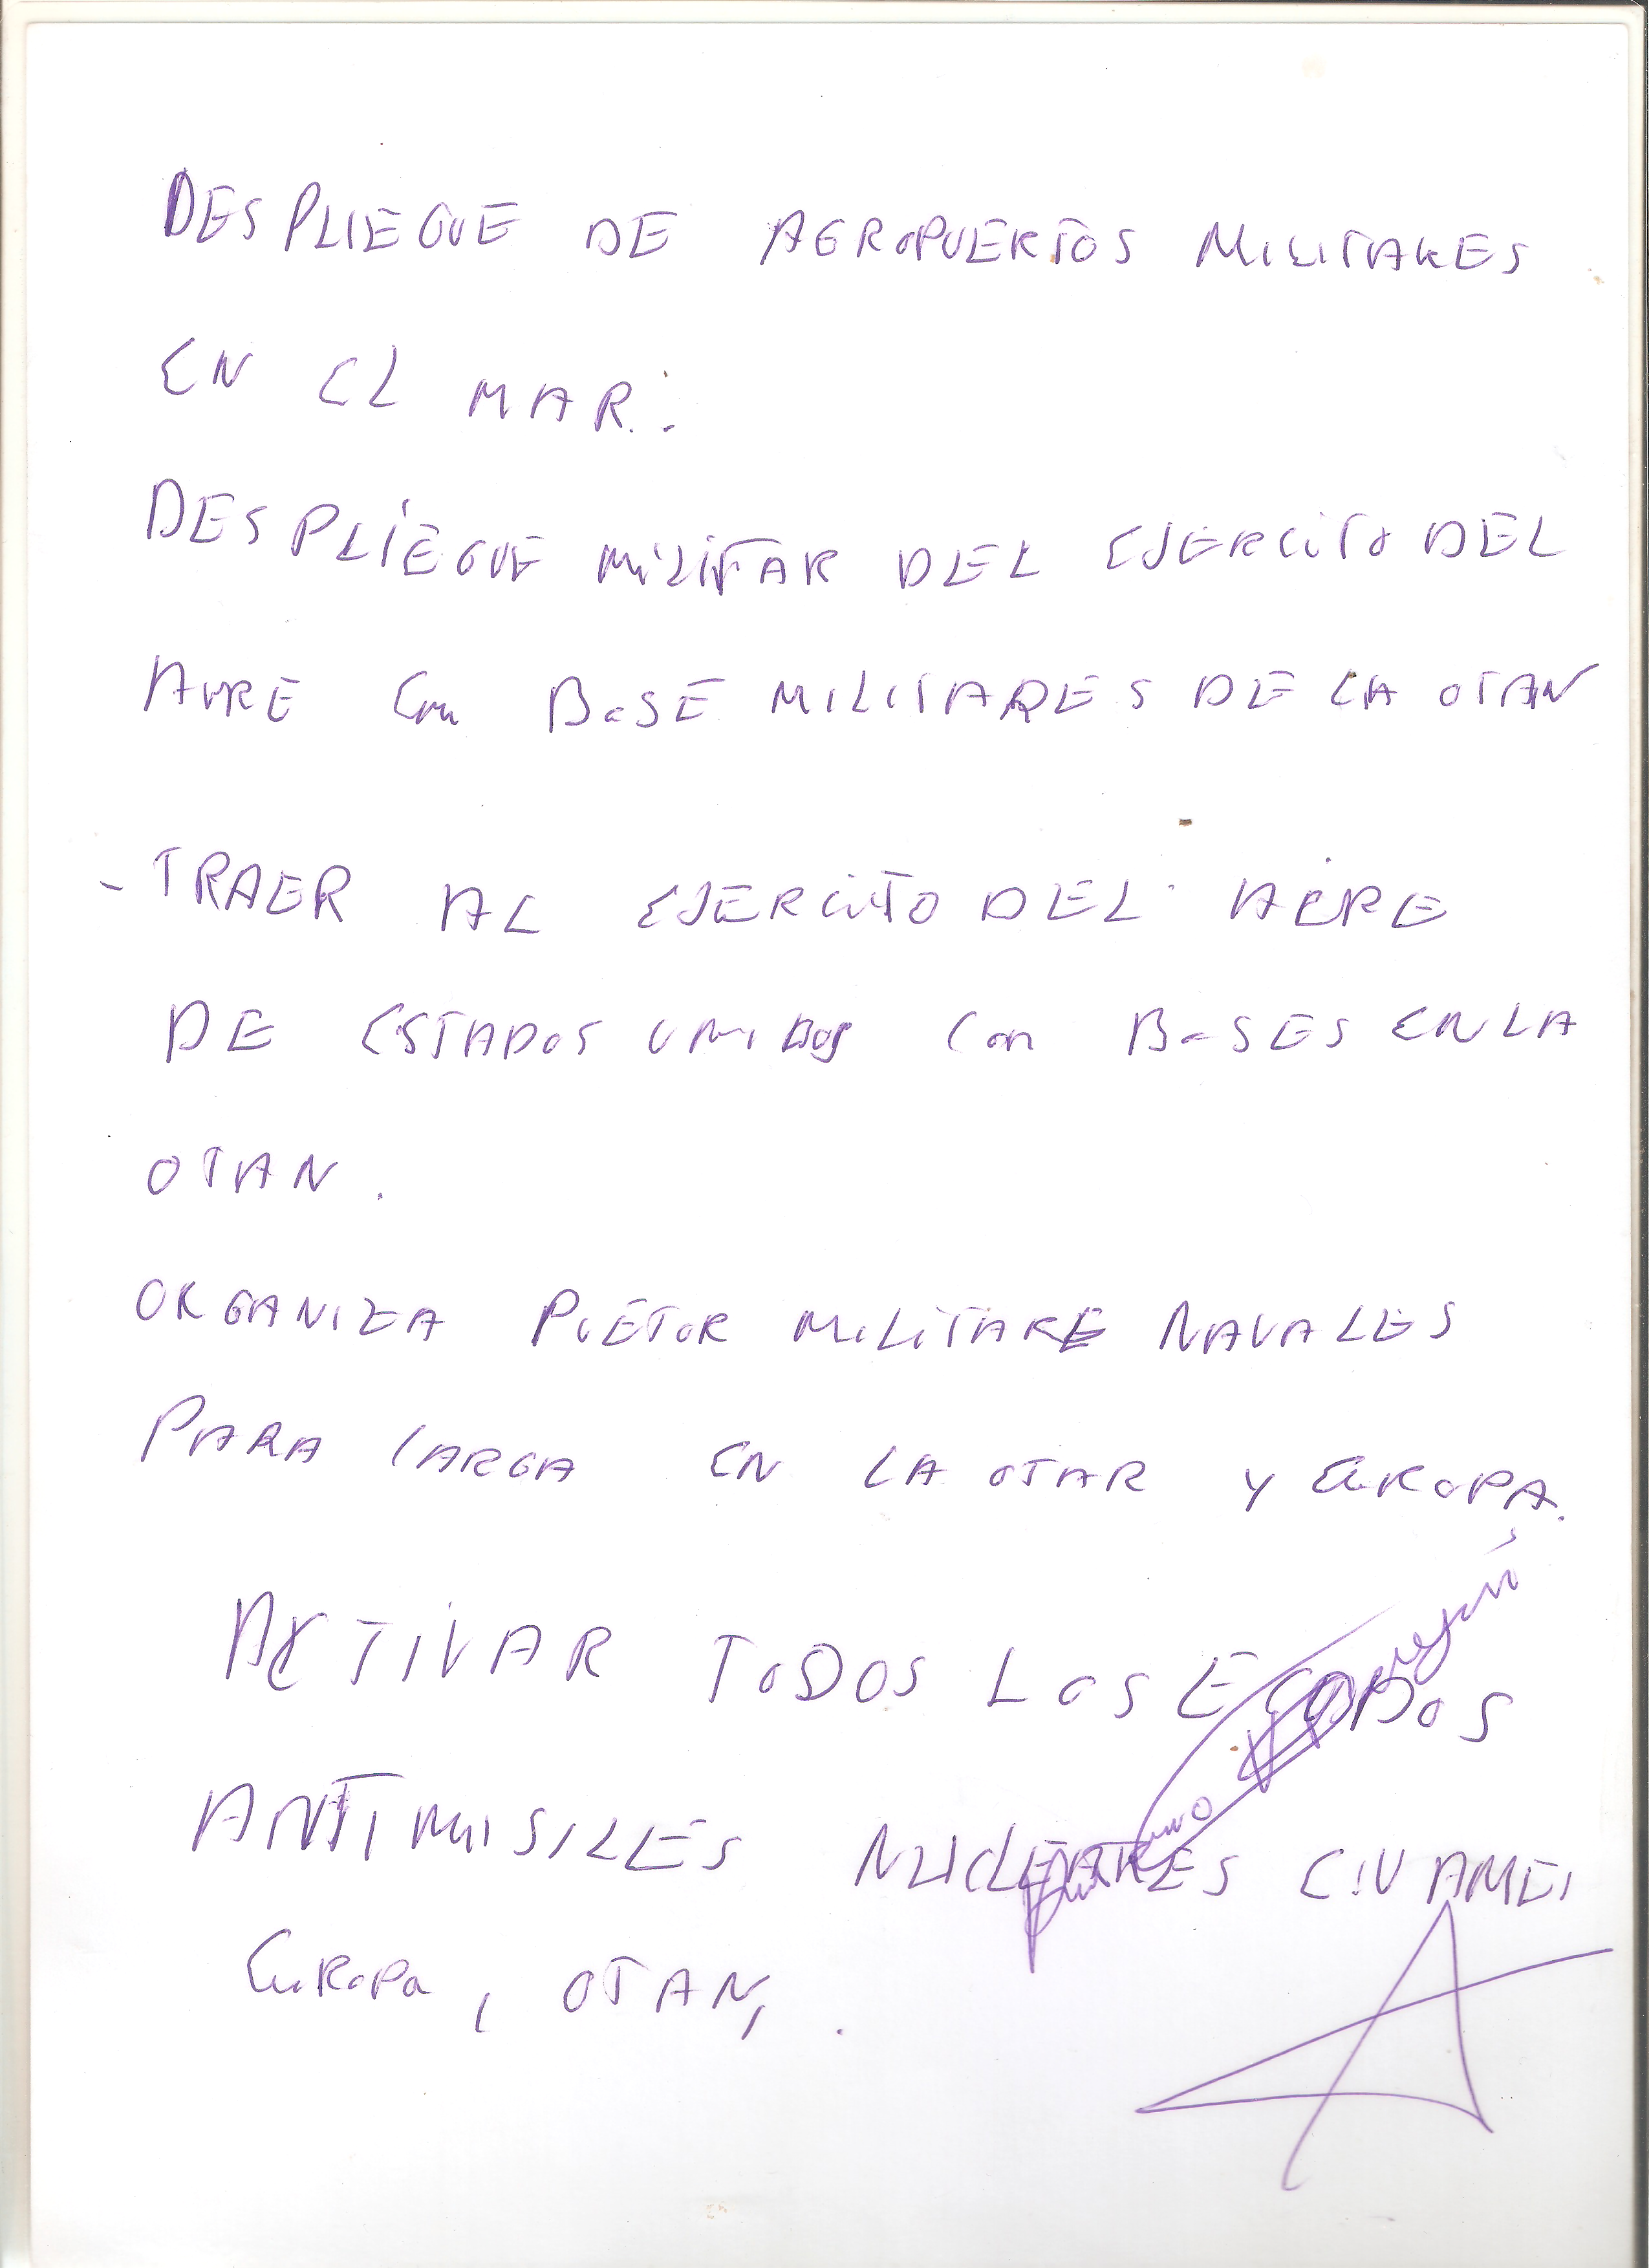 DESPLIEGUE DE AEROPUERTOS MILITARES
EN EL MAR.
DESPLIEGUE MILITAR DEL EJERCITO DEL
AIRE Con BaSE MILITARES DE LA OTAN
- TRAER AL EJERCITO DEL AIRE
DE ESTADOS UNIDOS Con BaSES EN LA
OTAN.
ORGANIZA PUETOR MILITARE NAVALES
PARA CARGA EN LA OTAR Y EUROPA.
ACTIVAR TODOS LOS ESCODOS
ANTIMISILES NUCLEARES
EuRoPa, OTAN, .